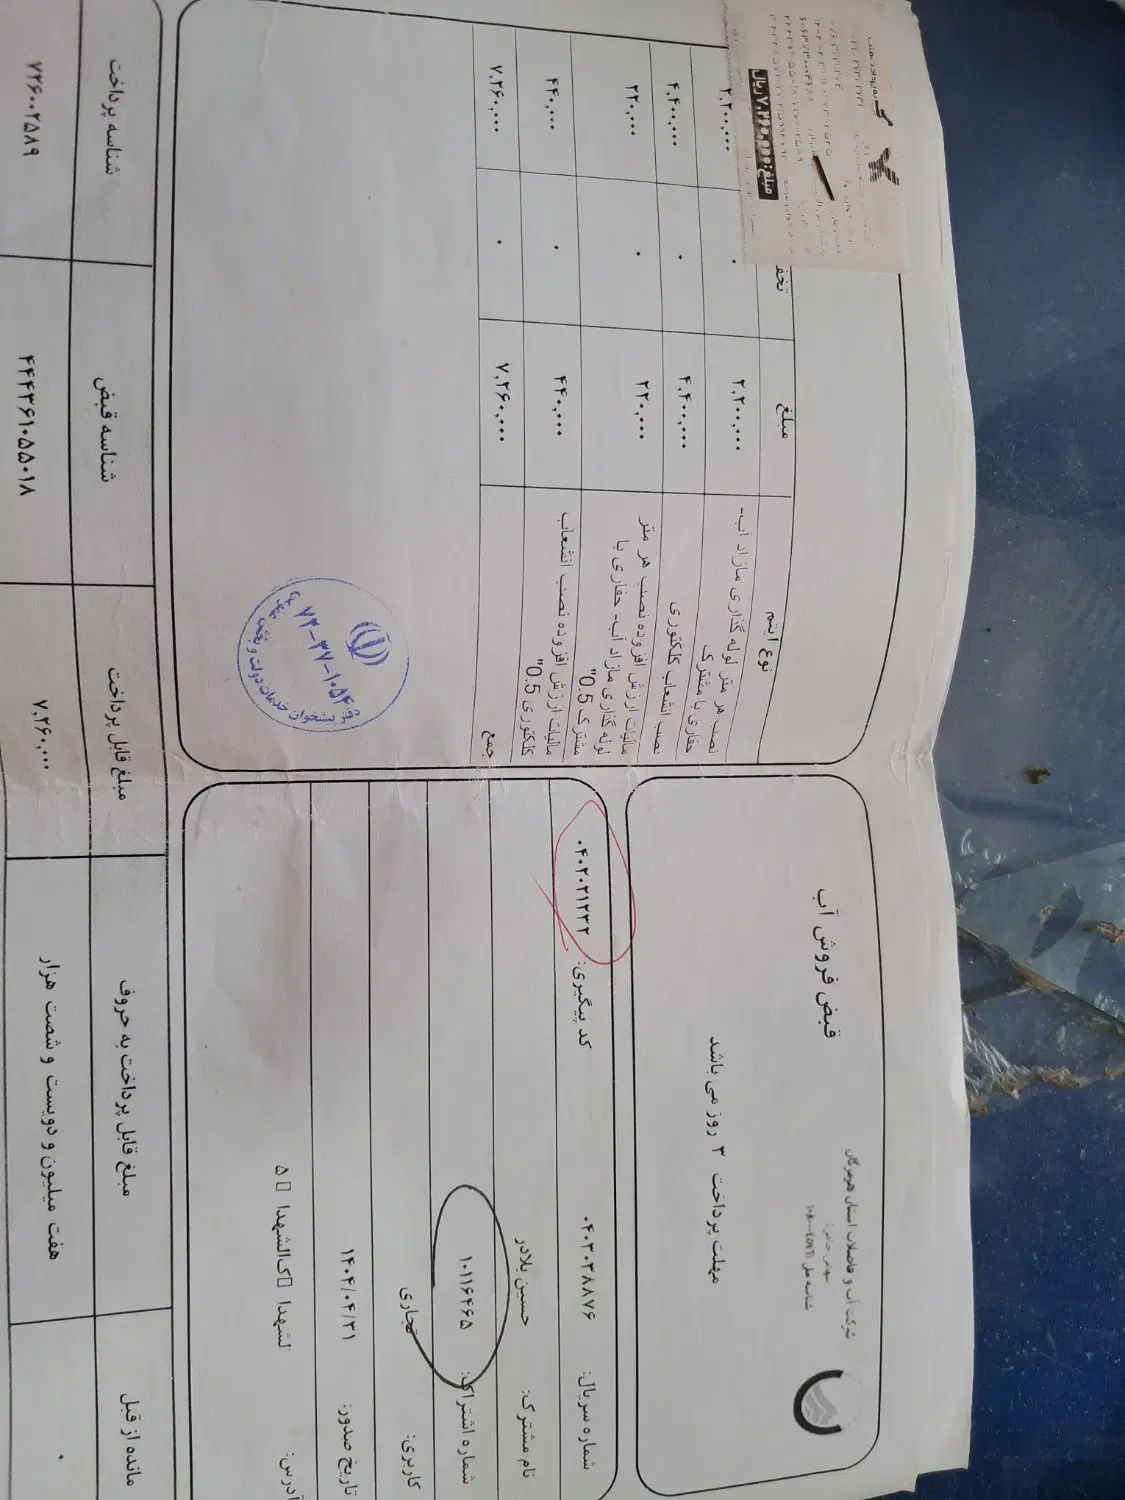 شرکت آب و فاضلاب استان هرمزگان
سهامی خاص
قبض فروش آب
مهلت پرداخت ۳ روز می باشد
شماره سریال: ۰۴۰۳۰۳۸۸۷۶
کد پیگیری: ۰۴۰۲۰۲۱۲۳۲
نام مشترک: حسین بلادر
شماره اشتراک: ۱۰۱۱۶۴۶۵
کاربری: تجاری
تاریخ صدور: ۱۴۰۴/۰۴/۳۱
آدرس:
نوع ایتم مبلغ
نصب هر متر لوله گذاری مازاد اب- حفاری با مشترک ۲,۲۰۰,۰۰۰ ۰ ۲,۲۰۰,۰۰۰
نصب انشعاب کلکتوری ۴,۴۰۰,۰۰۰ ۰ ۴,۴۰۰,۰۰۰
مالیات ارزش افزوده نصب هر متر ۲۲۰,۰۰۰ ۰ ۲۲۰,۰۰۰
لوله گذاری مازاد آب- حفاری با
مشترک 0.5"
مالیات ارزش افزوده نصب انشعاب ۴۴۰,۰۰۰ ۰ ۴۴۰,۰۰۰
کلکتوری 0.5"
جمع ۷,۲۶۰,۰۰۰ ۰ ۷,۲۶۰,۰۰۰
مبلغ: ۷,۲۶۰,۰۰۰ ریال
پیشخوان خدمات دولت و بخش
۷۲-۳۷-۱۰۵۴
مانده از قبل مبلغ قابل پرداخت به حروف مبلغ قابل پرداخت شناسه قبض شناسه پرداخت
۰ هفت میلیون و دویست و شصت هزار ۷,۲۶۰,۰۰۰ ۴۴۴۳۶۱۰۵۵۰۱۸ ۷۲۶۰۰۲۵۸۹